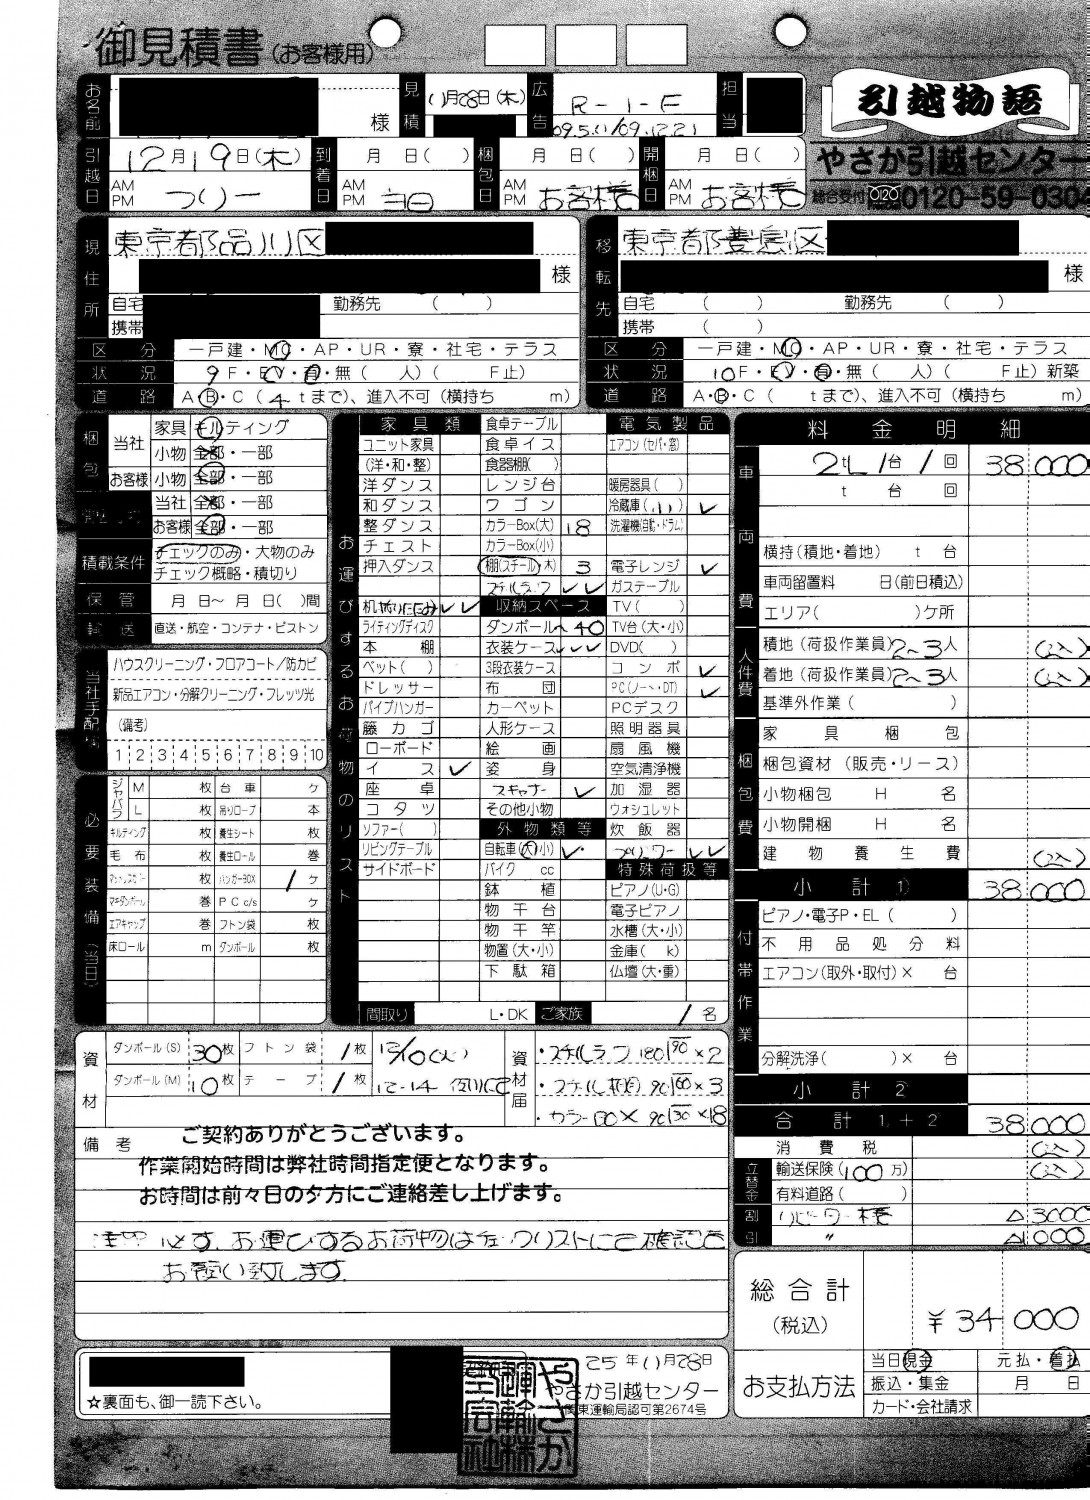 御見積書(お客様用)
お名前 様 見積 11月28日(木) 広告 R-1-E 担当
09.5.11/09.12.21
引越物語
引越日 12月19日(木) 到着日 月 日( ) 梱包日 月 日( ) 開梱日 月 日( )
AM PM フリー AM PM 当日 AM PM お客様 AM PM お客様
やさか引越センター
総合受付 0120-59-030
現住所 東京都品川区
様
自宅 勤務先 ( )
携帯
区分 一戸建・MC・AP・UR・寮・社宅・テラス
状況 9F・EV・有・無( 人)( F止)
道路 A・B・C(4tまで)、進入不可(横持ち m)
移転先 東京都豊島区
様
自宅 ( ) 勤務先 ( )
携帯 ( )
区分 一戸建・MC・AP・UR・寮・社宅・テラス
状況 10F・EV・有・無( 人)( F止)新築
道路 A・B・C( tまで)、進入不可(横持ち m)
梱包 当社 家具 キルティング
小物 全部・一部
お客様 小物 全部・一部
当社 全部・一部
お客様 全部・一部
積載条件 チェックのみ・大物のみ
チェック概略・積切り
保管 月 日~ 月 日( )間
輸送 直送・航空・コンテナ・ピストン
当社手配欄
ハウスクリーニング・フロアコート/防カビ
新品エアコン・分解クリーニング・フレッツ光
(備考)
1 2 3 4 5 6 7 8 9 10
必要装備(当日)
ジャバラ M 枚 台車 ケ
L 枚 吊りロープ 本
キルティング 枚 養生シート 枚
毛布 枚 養生ロール 巻
枚 ハンガーBOX 1ケ
巻 PCc/s ケ
エアキャップ 巻 フトン袋 枚
床ロール m ダンボール 枚
お運びするお荷物のリスト
家具類
ユニット家具
(洋・和・整)
洋ダンス
和ダンス
整ダンス
チェスト
押入ダンス
机 折りたたみ ✓✓
ライティングディスク
本棚
ベット( )
ドレッサー
パイプハンガー
籐カゴ
ローボード
イス ✓
座卓
コタツ
ソファー( )
リビングテーブル
サイドボード
食卓テーブル
食卓イス
食器棚( )
レンジ台
ワゴン
カラーBox(大) 18
カラーBox(小)
棚(スチール)(木) 3
スチールラック ✓✓
収納スペース
ダンボール ~40
衣装ケース ✓✓✓
3段衣装ケース
布団
カーペット
人形ケース
絵画
姿身
スキャナー ✓
その他小物
外物類等
自転車(大・小) ✓
バイク cc
鉢植
物干台
物干竿
物置(大・小)
下駄箱
電気製品
エアコン(セパ・窓)
暖房器具( )
冷蔵庫(小) ✓
洗濯機(自動・ドラム)
電子レンジ ✓
ガステーブル
TV( )
TV台(大・小)
DVD( )
コンポ ✓
PC(ノート・DT) ✓
PCデスク
照明器具
扇風機
空気清浄機
加湿器
ウォシュレット
炊飯器
プリンター ✓✓
特殊荷扱等
ピアノ(U・G)
電子ピアノ
水槽(大・小)
金庫( k)
仏壇(大・重)
間取り L・DK ご家族 1名
料金明細
車両費 2tL 1台 1回 38,000
t 台 回
横持(積地・着地) t 台
車両留置料 日(前日積込)
エリア( )ケ所
人件費 積地(荷扱作業員)2~3人 (込)
着地(荷扱作業員)2~3人 (込)
基準外作業( )
梱包費 家具梱包
梱包資材(販売・リース)
小物梱包 H 名
小物開梱 H 名
建物養生費 (込)
小計1 38,000
付帯作業 ピアノ・電子P・EL( )
不用品処分料
エアコン(取外・取付)× 台
分解洗浄( )× 台
小計2
合計1+2 38,000
消費税 (込)
立替金 輸送保険(100万) (込)
有料道路( )
割引 リピーター様 △3000
〃 △1000
総合計(税込) ¥34,000
お支払方法 当日現金 元払・着払
振込・集金 月 日
カード・会社請求
資材 ダンボール(S) 30枚 フトン袋 1枚 12/10(火)
ダンボール(M) 10枚 テープ 1枚 12-14
資材届 ・スチールラック 180 90 ×2
・スチール棚 90 60 ×3
・カラーBOX 90 30 ×18
備考
ご契約ありがとうございます。
作業開始時間は弊社時間指定便となります。
お時間は前々日の夕方にご連絡差し上げます。
必ず、お運びするお荷物は左記リストにてご確認を
お願い致します。
☆裏面も、御一読下さい。
25年11月28日
やさか引越センター
関東運輸局認可第2674号